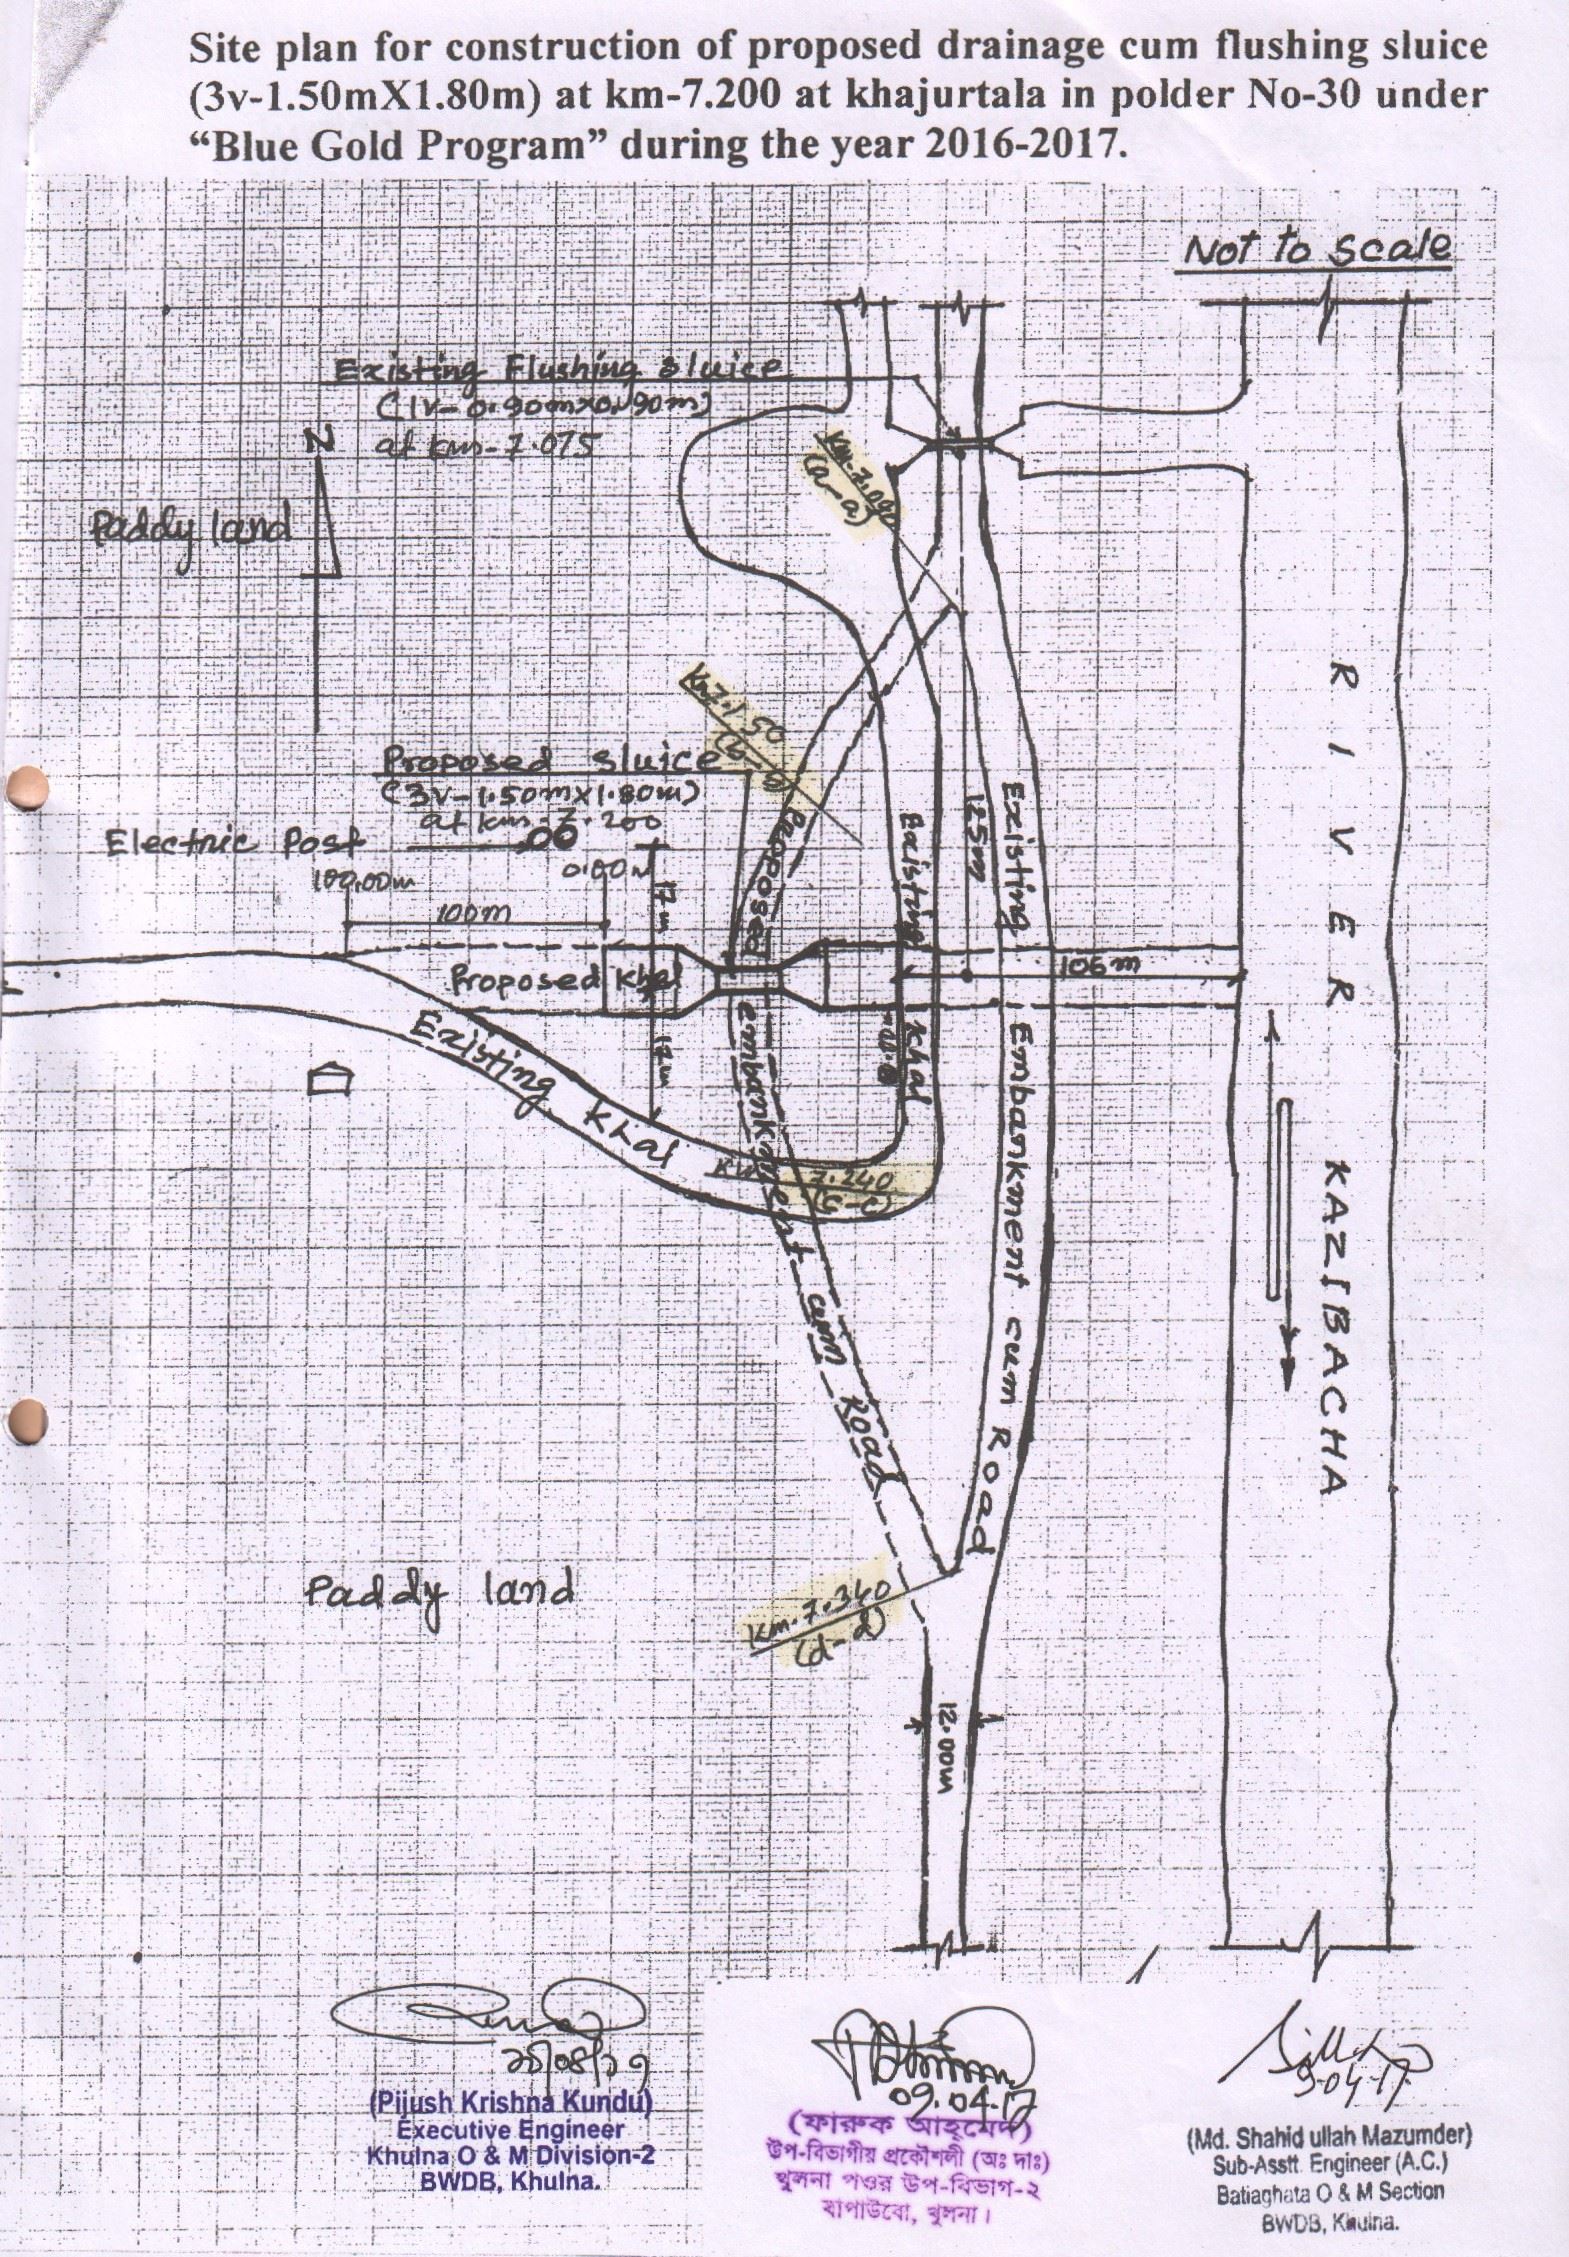 Site plan for construction of proposed drainage cum flushing sluice
(3v-1.50mX1.80m) at km-7.200 at khajurtala in polder No-30 under
“Blue Gold Program” during the year 2016-2017.
Not to scale
Existing Flushing sluice
(1v-0.90mx0.90m)
at km-7.075
N
Paddy land
(a-a)
Km7.150
Proposed sluice
(3v-1.50mx1.80m)
at km-7.200
Electric Post
100.00m
0.00m
100m
17m
17m
Proposed Khal
Proposed embankment cum Road
Existing Khal
Existing khal
125m
106m
Existing Embankment cum Road
RIVER KAZIBACHA
7.240
(c-c)
Paddy land
Km.7.340
(d-d)
12.00m
(Pijush Krishna Kundu)
Executive Engineer
Khulna O & M Division-2
BWDB, Khulna.
09.04.17
(ফারুক আহ্মেদ)
উপ-বিভাগীয় প্রকৌশলী (অঃ দাঃ)
খুলনা পওর উপ-বিভাগ-২
বাপাউবো, খুলনা।
9-04-17
(Md. Shahid ullah Mazumder)
Sub-Asstt. Engineer (A.C.)
Batiaghata O & M Section
BWDB, Khulna.